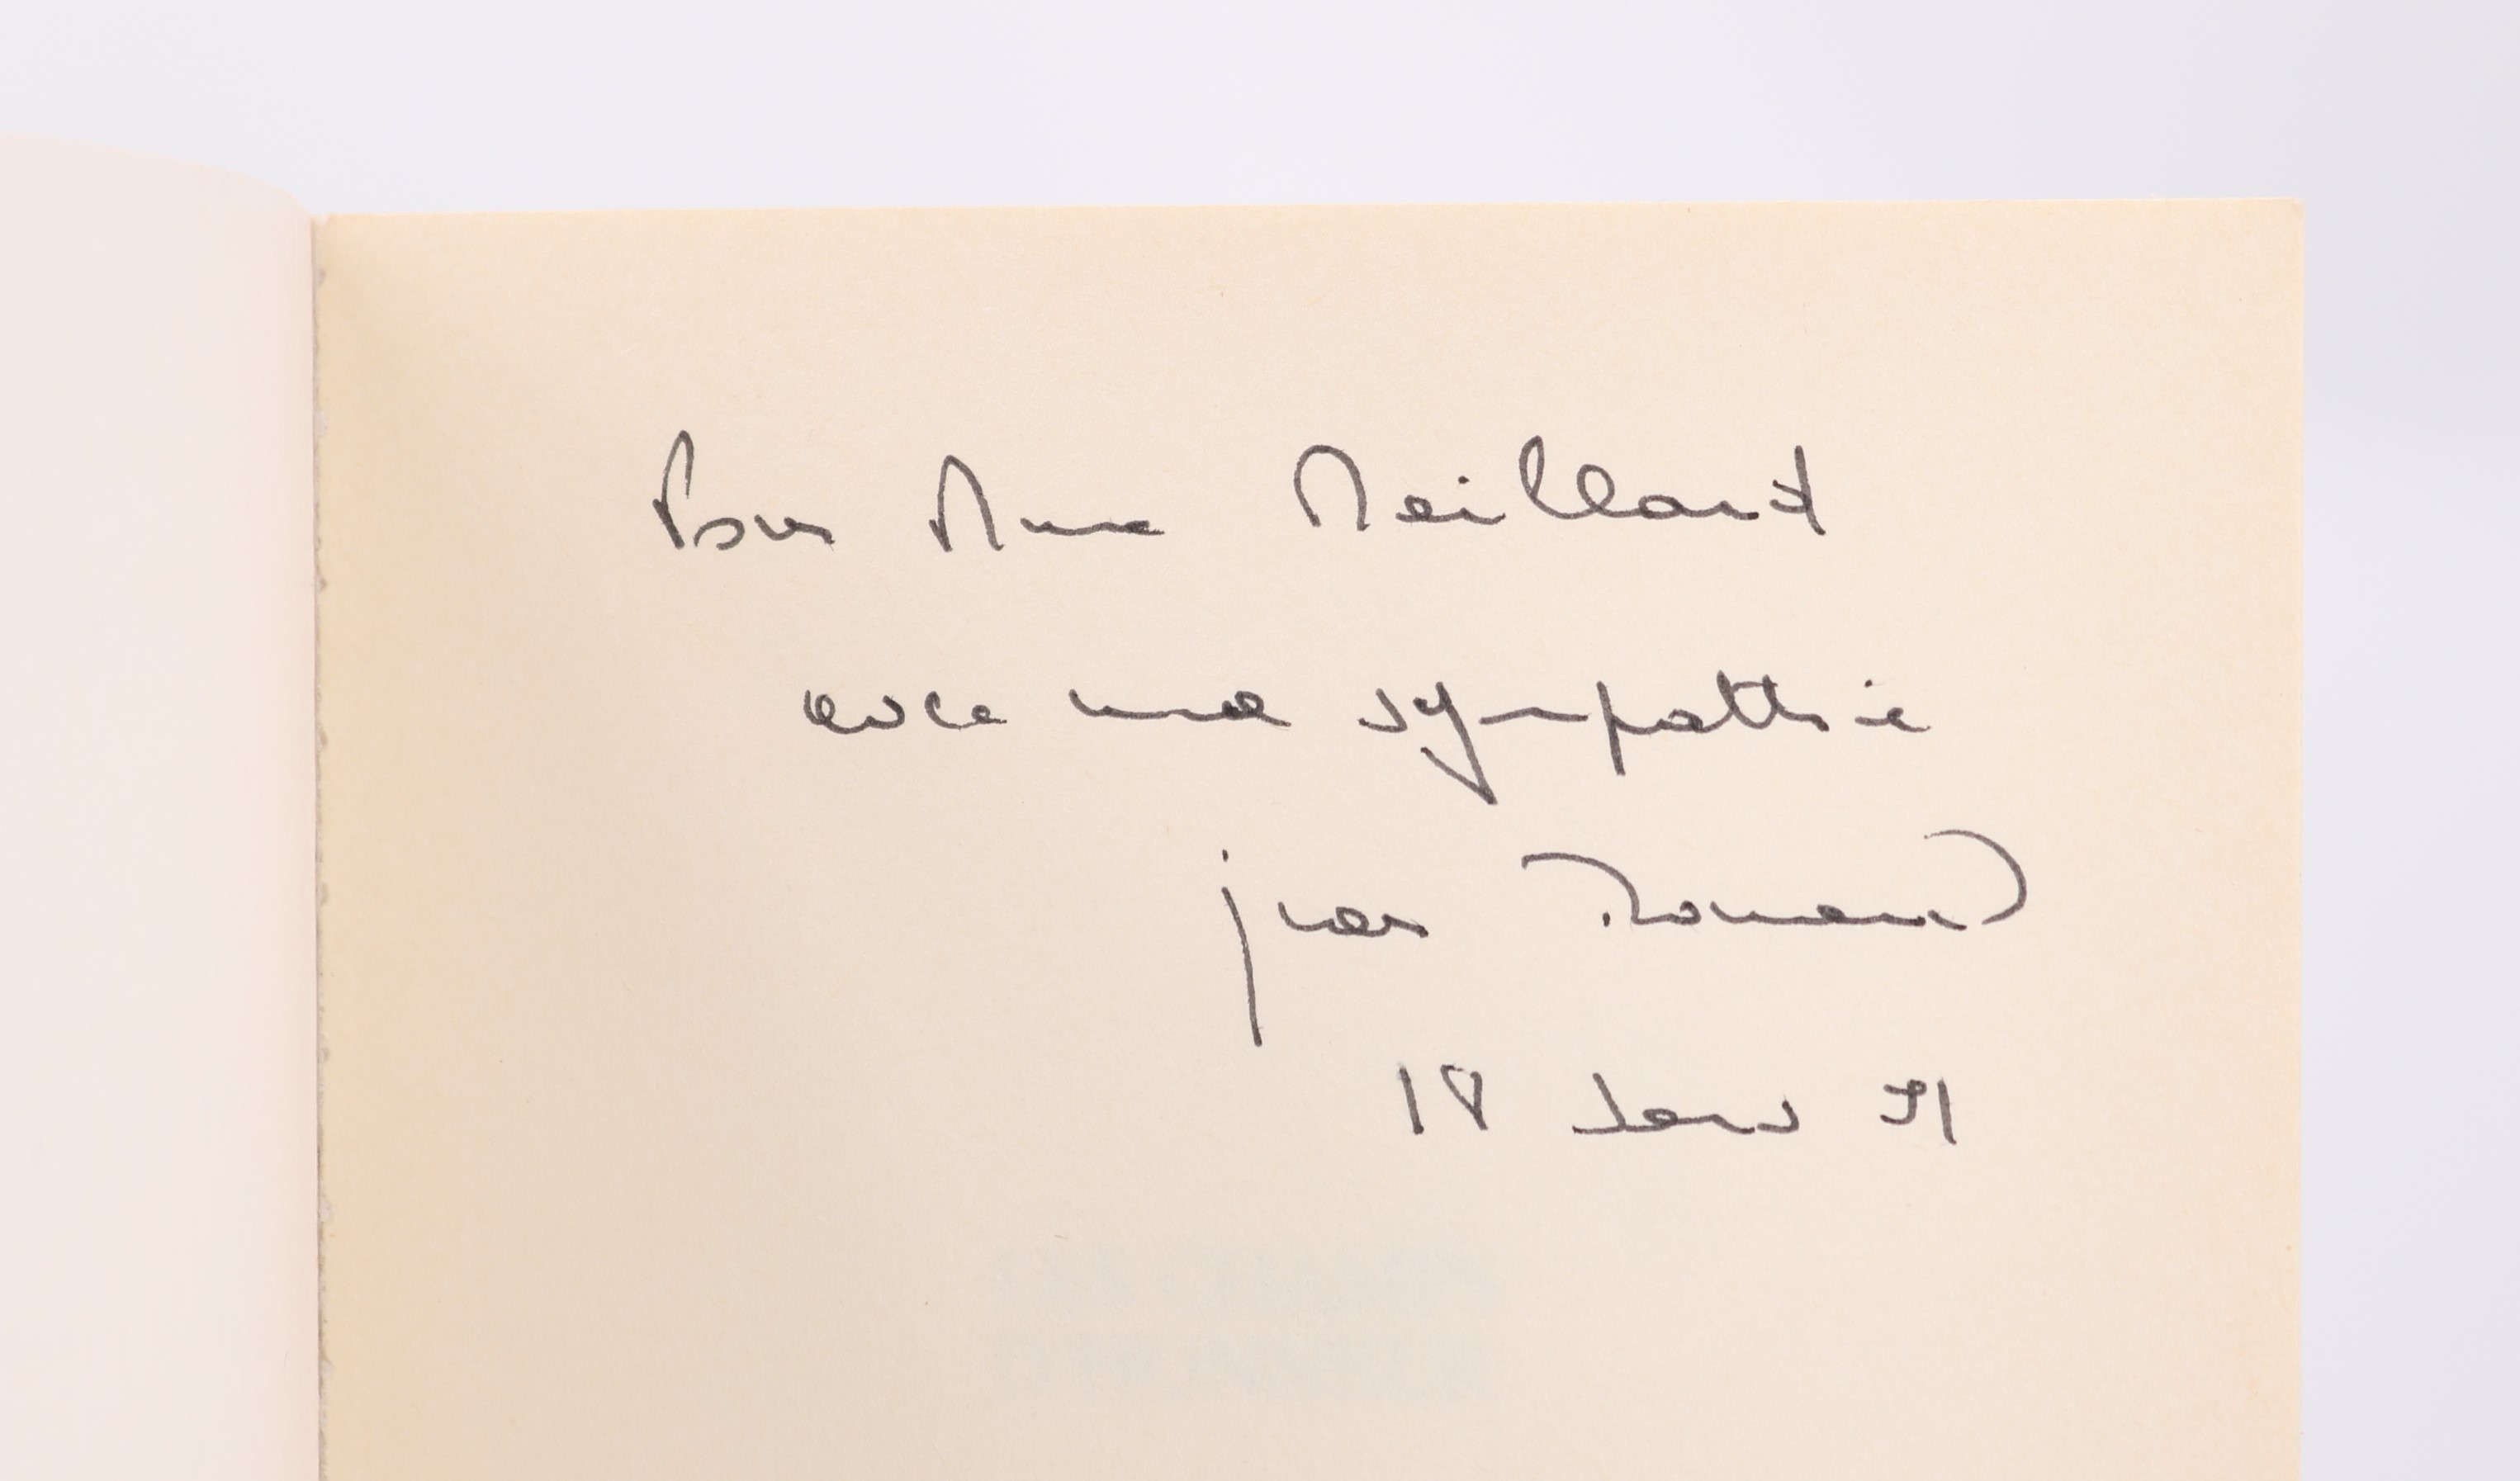 Pour Mme Meillard
avec ma sympathie
jean Romain
18 Janv 91